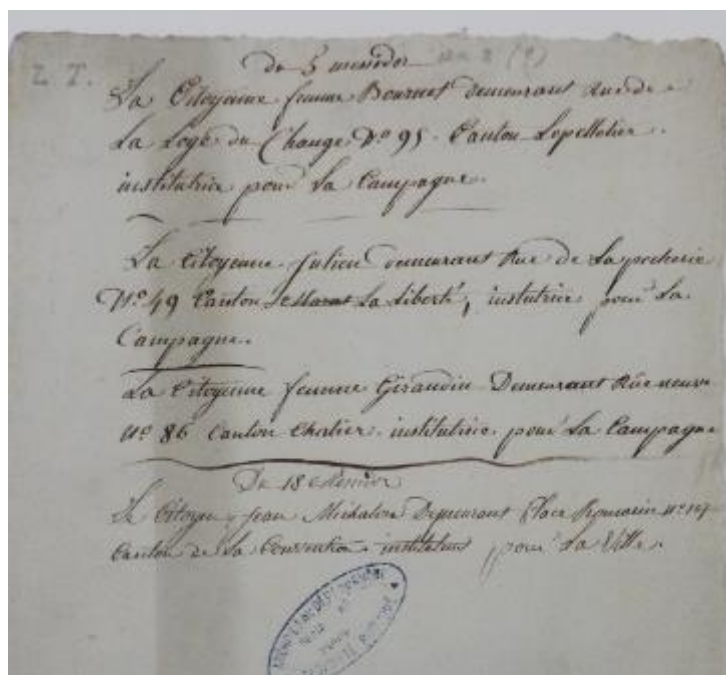 L T.
du 5 messidor an 2 (?)
La Citoyenne femme Bournet demeurant Rue de
La Loge du Change N.o 95. Canton Lepelletier.
institutrice pour la Campagne.
La Citoyenne Julien demeurant Rue de La pecherie
N.o 49 Canton La Liberté, institutrice pour la
Campagne.
La Citoyenne femme Girandin Demeurant Rue neuve
N.o 86 Canton Chalier. institutrice pour La Campagne
Du 18 Messidor
Le Citoyen Jean Michalon Demeurant Place Romarin N.o
Canton de La Convention instituteur pour La Ville.